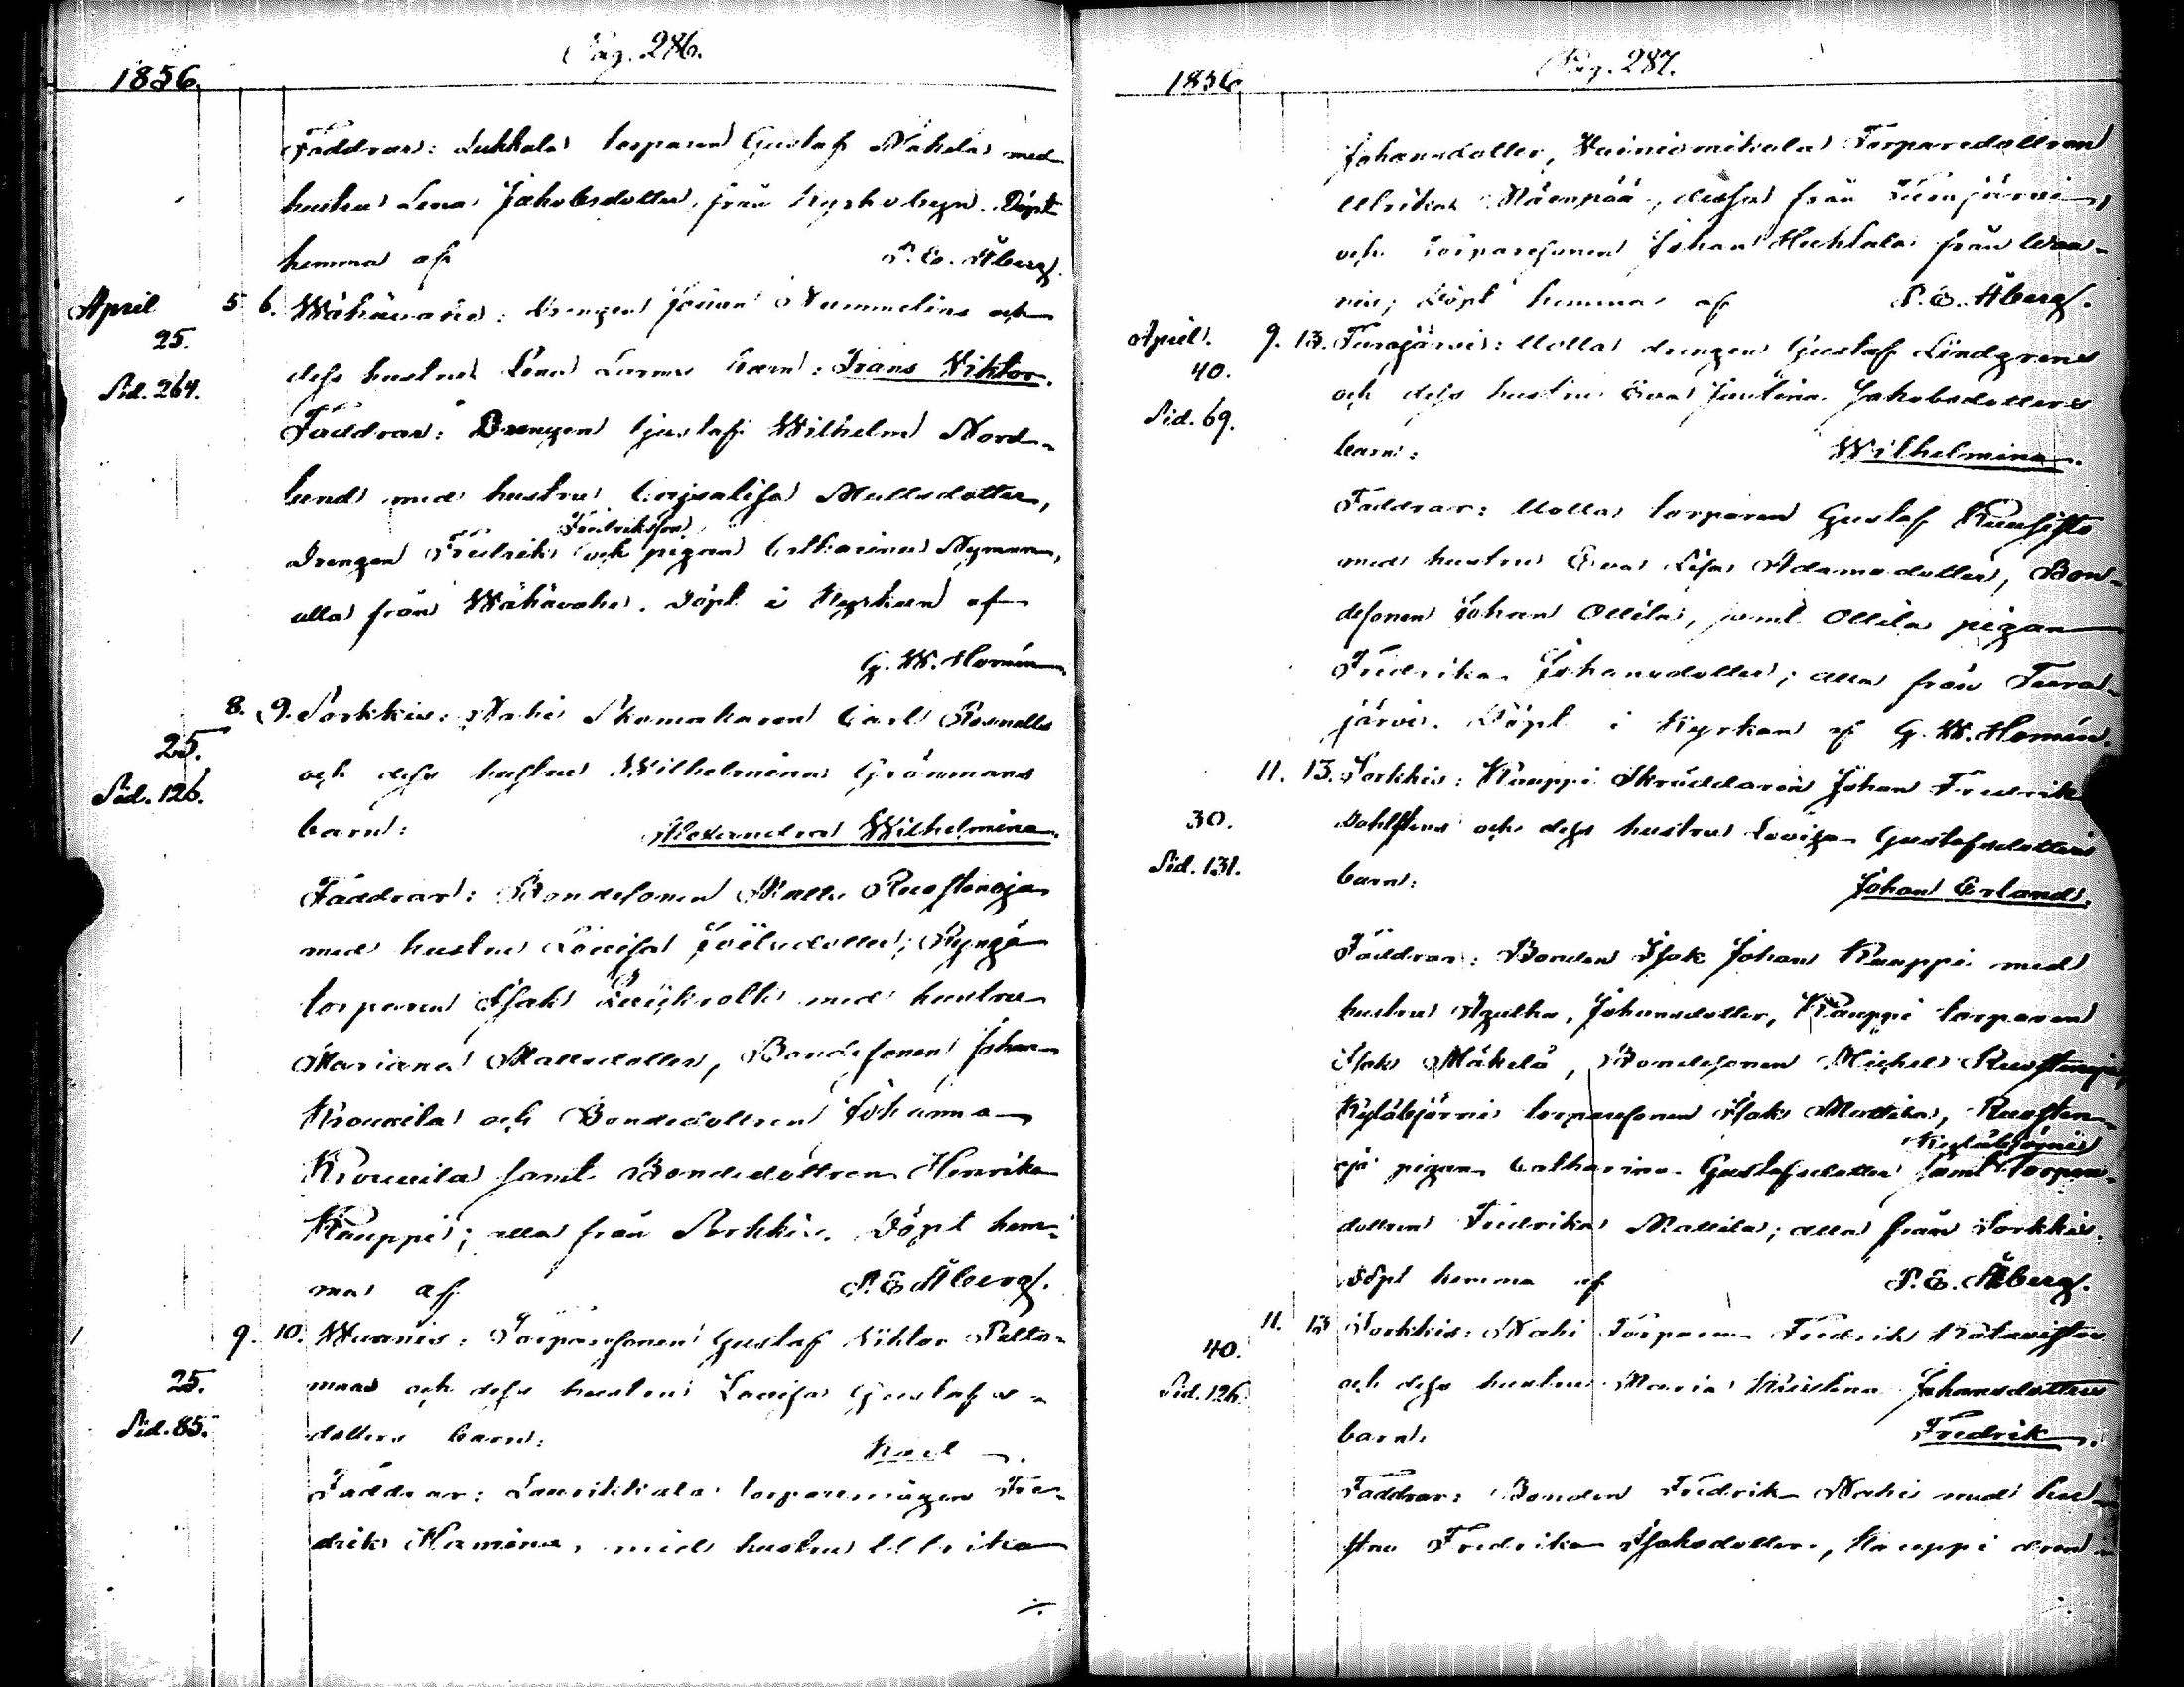 Pag. 286.
1856.
Faddrar: Lukkala torparen Gustaf Nahela med
hustru Lena Jakobsdotter, från Kyrkobyn. Döpt
hemma af P. E. Åberg.
April 5 6. Wähäwahe: Drengen Johan Nummelins och
25.
dess hustrus Lena barn: Frans Viktor.
Sid. 264.
Faddrar: Drengen Gustaf Wilhelm Nord-
lund med hustru Cajsalisa Mattsdotter,
Fredriksson
Drengen Fredrik och pigan Catharina Nyman,
alla från Wähäwahe. Döpt i Kyrkan af
G. W. Homén
8. 9. Sorkkis: Nahi Skomakaren Carl
25.
och dess hustrus Wilhelmina Grönmans
Sid. 126.
barn: Alexandra Wilhelmina.
Faddrar: Bondesonen Kalle Ruostenoja
med hustru Lovisa Joëlsdotter;
torparen Isak med hustru
Mariana Mattsdotter, Bondesonen Johan
Krouvila och Bondedottren Johanna
Krouvila samt Bondedottren Henrika
Kauppi; alla från Sorkkis. Döpt hem-
ma af P. E. Åberg.
9. 10. Wuanis: Torparesonen Gustaf Viktor Pelto-
25.
maas och dess hustrus Lovisa Gustafs-
Sid. 85.
dotters barn: Karl.
Faddrar: Laurikkala torparemågen Fre-
drik Hamina, med hustru Ulrika
÷
Pag. 287.
1856
Johansdotter, Torparedottren
Ulrika Mäenpää, dessa från
och torparesonen Johan Huhtala från Wua-
nis; Döpt hemma af P. E. Åberg.
April. 9. 13. Turajärvi: Uolla drengen Gustaf Lindgrens
40.
och dess hustrus Eva Justina Jakobsdotters
Sid. 69.
barn: Wilhelmina.
Faddrar: Uolla torparen Gustaf Kuusisto
med hustru Eva Lisa Adamsdotter, Bon-
desonen Johan Ollila, samt Ollila pigan
Fredrika Johansdotter; alla från Tura-
järvi. Döpt i Kyrkan af G. W. Homén.
11. 13. Sorkkis: Kauppi Skräddaren Johan Fredrik
30.
Dahlstens och dess hustrus Lovisa Gustafsdotters
Sid. 131.
barn: Johan Erland.
Faddrar: Bonden Isak Johan Kauppi med
hustru Agatha Johansdotter, Kauppi torparen
Isak Mäkelä, Bondesonen Michel Ruostenoja,
Kyläbjörnis torparesonen Isak Mattila, Ruosten-
Kyläbjörnis
oja pigan Catharina Gustafsdotter samt Torpare-
dottren Fredrika Mattila; alla från Sorkkis.
Döpt hemma af P. E. Åberg.
11. 13 Sorkkis: Nahi Torparen Fredrik Katavistos
40.
och dess hustrus Maria Kristina Johansdotters
Sid. 126.
barn: Fredrik.
Faddrar: Bonden Fredrik Nahi med hu-
stru Fredrika Isaksdotter, Kauppi dren-